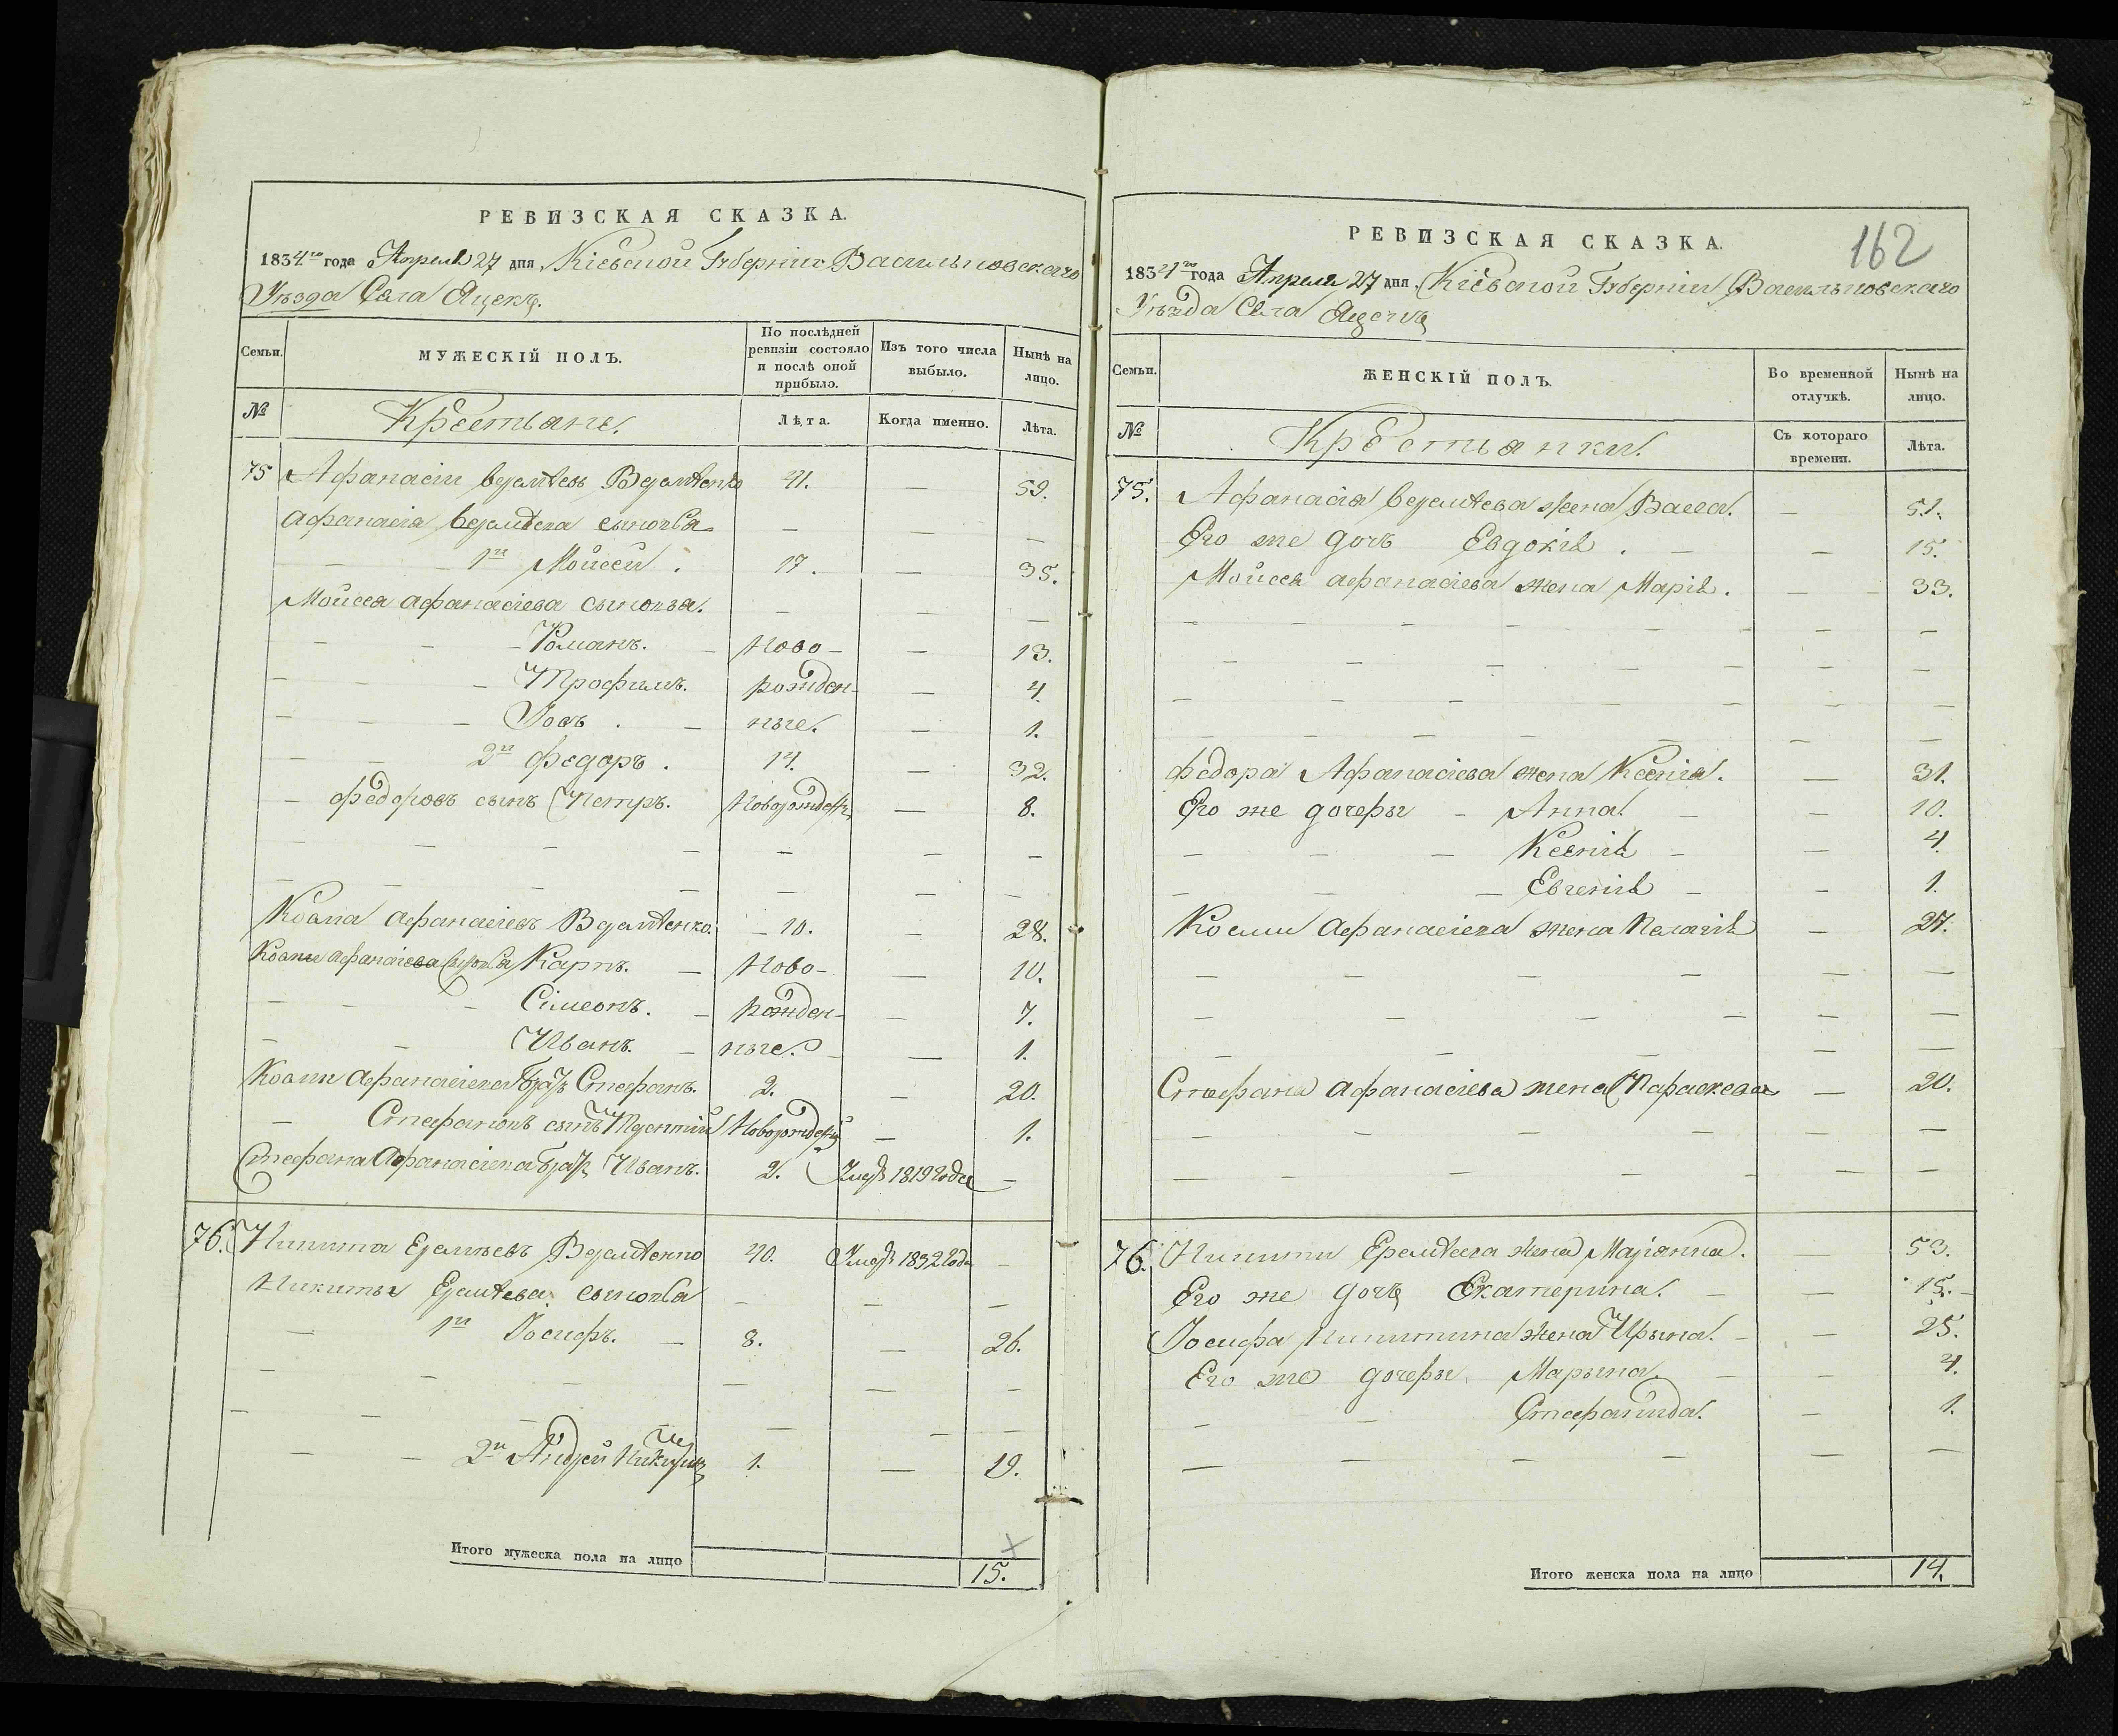 РЕВИЗСКАЯ СКАЗКА.
1834го года Апреля 27 дня Кіевской Губерніи Васильковскаго
Уезда Села Яцекъ.
Семьи.
МУЖЕСКІЙ ПОЛЪ.
По послѣдней ревизіи состояло и послѣ оной прибыло.
Изъ того числа выбыло.
Нынѣ на лицо.
№ Крестьяне. Лѣта. Когда именно. Лѣта.
75 Афанасій Веремѣевъ 41. — 59.
Афанасія Веремѣева сыновья — — —
1й Мойсей. 17. — 35.
Мойсея Афанасіева сыновья. — — —
Романъ. Ново- — 13.
Трофимъ. рожден- — 4.
Іовъ. ные. — 1.
2й Федоръ. 14. — 32.
Федоровъ сынъ Петръ. Новорожден — 8.
— — — —
— — — —
Козма Афанасіевъ 10. — 28.
Козмы Афанасіева сыновья Карпъ. Ново- — 10.
Сімеонъ. рожден- — 7.
Иванъ. ные. — 1.
Козмы Афанасіева братъ Стефанъ. 2. — 20.
Стефановъ сынъ Новорожден — 1.
Стефана Афанасіева братъ Иванъ. 2. Умеръ 1819 года —
76. Никита Еремѣевъ 40. Умеръ 1832 года —
Никиты Еремѣева сыновья — — —
1й Іосифъ. 8. — 26.
— — — —
— — — —
2й Андрей 1. — 19.
Итого мужеска пола на лицо 15.
162
РЕВИЗСКАЯ СКАЗКА.
1834го года Апреля 27 дня Кіевской Губерніи Васильковскаго
Уезда Села Яцекъ
Семьи.
ЖЕНСКІЙ ПОЛЪ.
Во временной отлучкѣ.
Нынѣ на лицо.
№ Крестьянки. Съ котораго времени. Лѣта.
75. Афанасія Веремѣева жена Васса. — 51.
Его же дочь Евдокія. — 15.
Мойсея Афанасіева жена Марія. — 33.
— — —
— — —
— — —
— — —
Федора Афанасіева жена Ксенія. — 31.
Его же дочеры Анна. — 10.
Ксенія — 4.
Евгенія — 1.
Козмы Афанасіева жена Пелагія — 27.
— — —
— — —
— — —
Стефана Афанасіева жена Параскева — 20.
— — —
— — —
76. Никиты Еремѣева жена Маріянна. — 53.
Его же дочь Екатерина. — 15.
Іосифа Никитина жена Ирына. — 25.
Его же дочеры Марына. — 4.
Стефанида. — 1.
— — —
Итого женска пола на лицо 14.